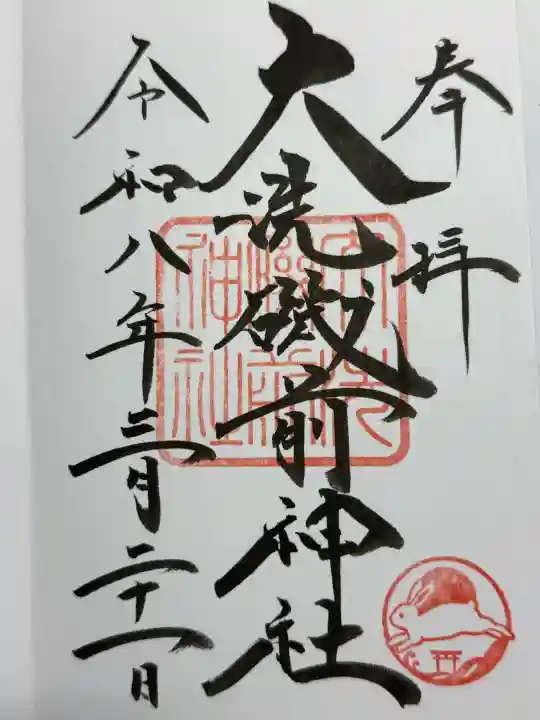 奉拝
大洗磯前神社
令和八年三月二十一日
大洗磯前神社